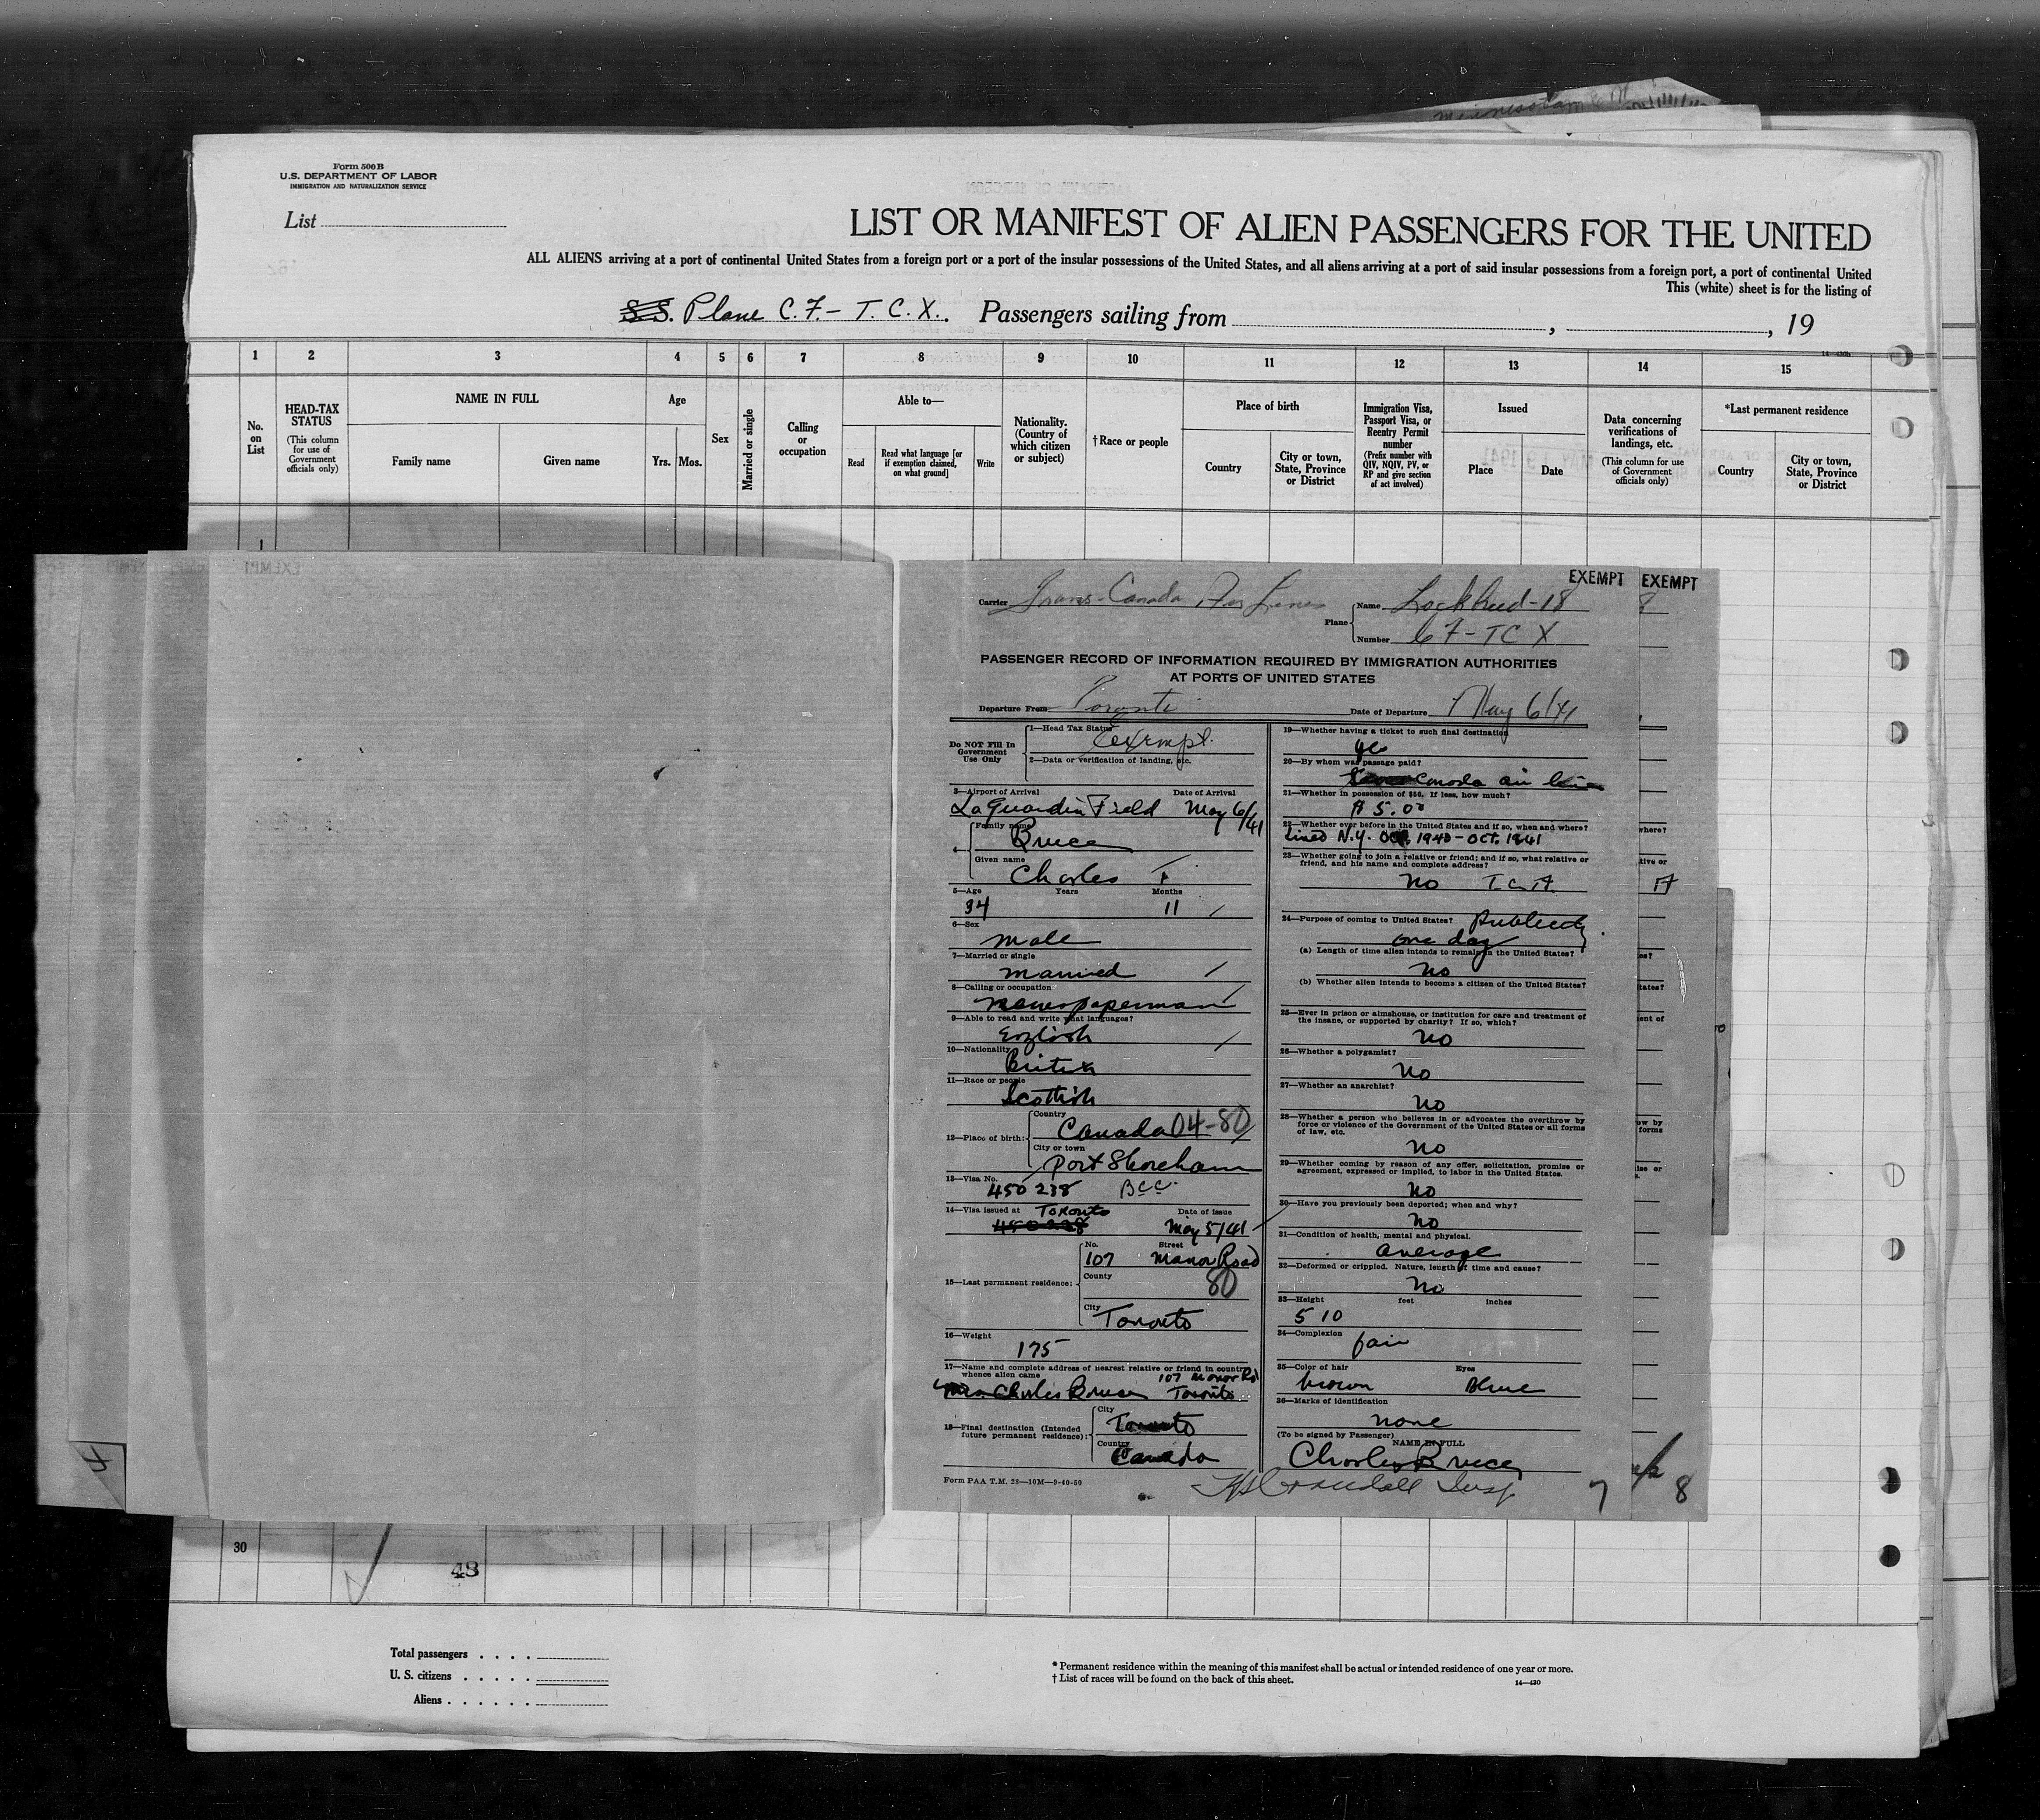 Form 500 B
U.S. DEPARTMENT OF LABOR
IMMIGRATION AND NATURALIZATION SERVICE
List
LIST OR MANIFEST OF ALIEN PASSENGERS FOR THE UNITED
ALL ALIENS arriving at a port of continental United States from a foreign port or a port of the insular possessions of the United States, and all aliens arriving at a port of said insular possessions from a foreign port, a port of continental United
This (white) sheet is for the listing of
S.S. Plane C.F.-T.C.X. Passengers sailing from , , 19
14-430b
1 2 3 4 5 6 7 8 9 10 11 12 13 14 15
No. on List
HEAD-TAX STATUS
(This column for use of Government officials only)
NAME IN FULL
Family name Given name
Age
Yrs. Mos.
Sex
Married or single
Calling or occupation
Able to—
Read
Read what language [or if exemption claimed, on what ground]
Write
Nationality. (Country of which citizen or subject)
†Race or people
Place of birth
Country
City or town, State, Province or District
Immigration Visa, Passport Visa, or Reentry Permit number
(Prefix number with QIV, NQIV, PV, or RP and give section of act involved)
Issued
Place Date
Data concerning verifications of landings, etc.
(This column for use of Government officials only)
*Last permanent residence
Country
City or town, State, Province or District
1
EXEMPT EXEMPT
Carrier Trans-Canada Air Lines
Plane Name Lockheed-18
Number CF-TCX
PASSENGER RECORD OF INFORMATION REQUIRED BY IMMIGRATION AUTHORITIES
AT PORTS OF UNITED STATES
Departure From Toronto Date of Departure May 6/41
Do NOT Fill In Government Use Only
1—Head Tax Status
Exempt.
2—Data or verification of landing, etc.
3—Airport of Arrival Date of Arrival
LaGuardia Field May 6/41
4 Family name
Bruce
Given name
Charles T.
5—Age Years Months
34 11
6—Sex
male
7—Married or single
married
8—Calling or occupation
newspaperman
9—Able to read and write what languages?
English
10—Nationality
British
11—Race or people
Scottish
12—Place of birth:
Country
Canada 04-80
City or town
Port Shoreham
13—Visa No.
450238 BCC.
14—Visa issued at Toronto Date of issue
450238 May 5/41
15—Last permanent residence:
No. Street
107 Manor Road
County
80
City
Toronto
16—Weight
175
17—Name and complete address of nearest relative or friend in country whence alien came
107 Manor Rd
Mrs. Charles Bruce Toronto
18—Final destination (Intended future permanent residence):
City
Toronto
Country
Canada
Form PAA T.M. 28—10M—9-40-50
19—Whether having a ticket to such final destination
yes
20—By whom was passage paid?
Canada air lines
21—Whether in possession of $50, If less, how much?
$5.00
22—Whether ever before in the United States and if so, when and where?
Lived N.Y. Oct. 1940-Oct. 1941
23—Whether going to join a relative or friend; and if so, what relative or friend, and his name and complete address?
no T.C.A.
24—Purpose of coming to United States? Publicity
one day
(a) Length of time alien intends to remain in the United States?
no
(b) Whether alien intends to become a citizen of the United States?
25—Ever in prison or almshouse, or institution for care and treatment of the insane, or supported by charity? If so, which?
no
26—Whether a polygamist?
no
27—Whether an anarchist?
no
28—Whether a person who believes in or advocates the overthrow by force or violence of the Government of the United States or all forms of law, etc.
no
29—Whether coming by reason of any offer, solicitation, promise or agreement, expressed or implied, to labor in the United States.
no
30—Have you previously been deported; when and why?
no
31—Condition of health, mental and physical.
average
32—Deformed or crippled. Nature, length of time and cause?
no
33—Height feet inches
5 10
34—Complexion
fair
35—Color of hair Eyes
brown Blue
36—Marks of identification
none
(To be signed by Passenger)
NAME IN FULL
Charles Bruce
Crandall Insp
7 8
30
48
Total passengers
U. S. citizens
Aliens
* Permanent residence within the meaning of this manifest shall be actual or intended residence of one year or more.
† List of races will be found on the back of this sheet.
14—430